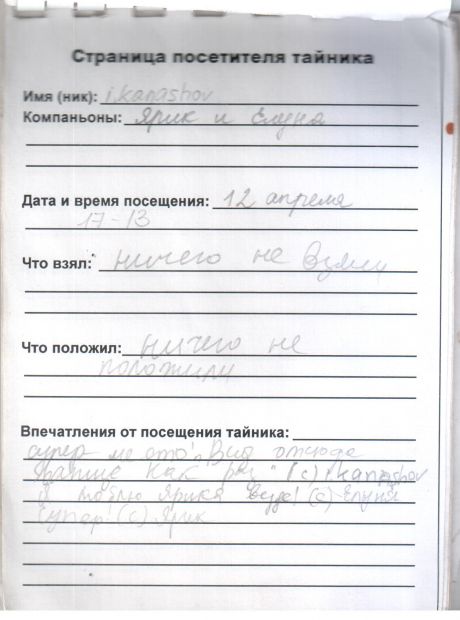 Страница посетителя тайника
Имя (ник): i.kanashov
Компаньоны: Ярик и Елуня
Дата и время посещения: 12 апреля
17-13
Что взял: ничего не взяли
Что положил: ничего не
положили
Впечатления от посещения тайника:
супер место! Вид отсюда
как раз (с) i.kanashov
Я люблю Ярика везде! (с) Елуня
Супер! (с) Ярик